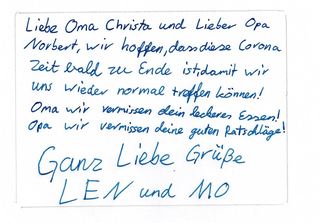 Liebe Oma Christa und Lieber Opa
Norbert, wir hoffen, dass diese Corona
Zeit bald zu Ende ist, damit wir
uns wieder normal treffen können!
Oma wir vermissen dein leckeres Essen!
Opa wir vermissen deine guten Ratschläge!
Ganz Liebe Grüße
LEN und MO